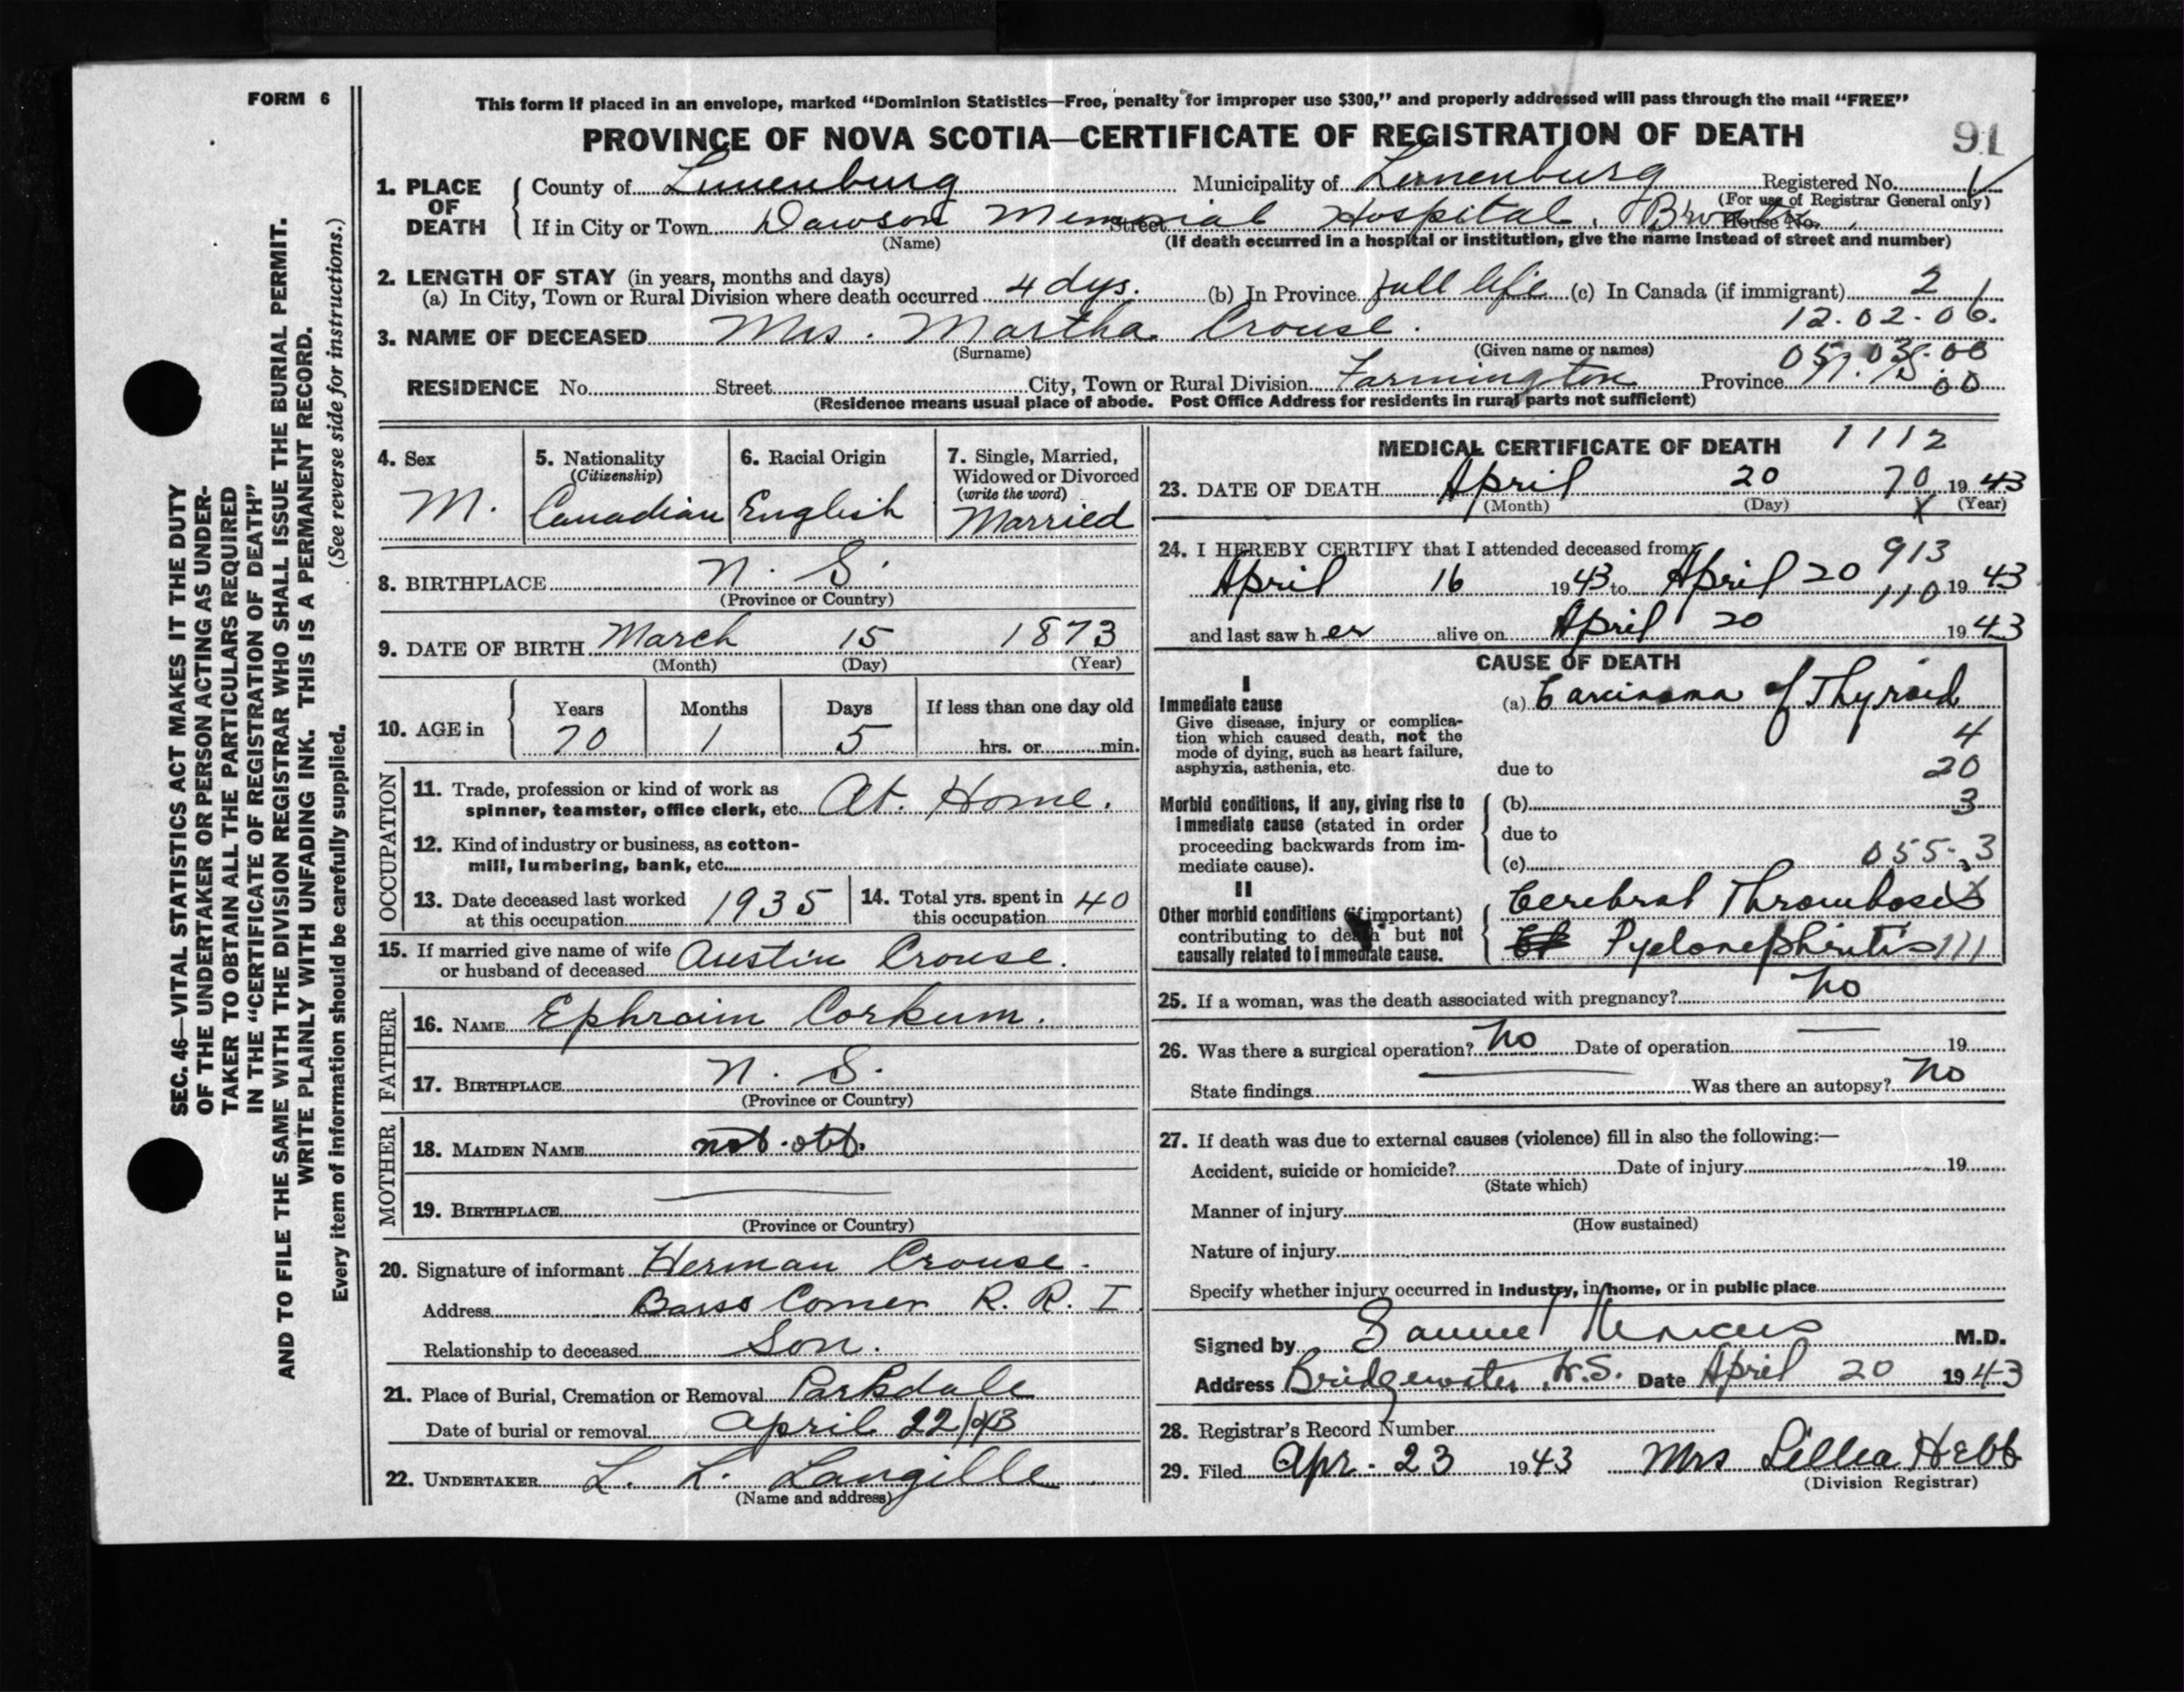 FORM 6
This form if placed in an envelope, marked “Dominion Statistics—Free, penalty for improper use $300,” and properly addressed will pass through the mail “FREE”
PROVINCE OF NOVA SCOTIA—CERTIFICATE OF REGISTRATION OF DEATH
91
SEC. 46—VITAL STATISTICS ACT MAKES IT THE DUTY
OF THE UNDERTAKER OR PERSON ACTING AS UNDER-
TAKER TO OBTAIN ALL THE PARTICULARS REQUIRED
IN THE “CERTIFICATE OF REGISTRATION OF DEATH”
AND TO FILE THE SAME WITH THE DIVISION REGISTRAR WHO SHALL ISSUE THE BURIAL PERMIT.
WRITE PLAINLY WITH UNFADING INK. THIS IS A PERMANENT RECORD.
Every item of information should be carefully supplied. (See reverse side for instructions.)
1. PLACE OF DEATH
County of Lunenburg Municipality of Lunenburg Registered No.
(For use of Registrar General only)
If in City or Town Dawson Memorial Hospital, Street House No.
(Name) (If death occurred in a hospital or institution, give the name instead of street and number)
2. LENGTH OF STAY (in years, months and days)
(a) In City, Town or Rural Division where death occurred 4 dys. (b) In Province full life (c) In Canada (if immigrant) 2 1
12.02.06.
3. NAME OF DECEASED Mrs. Martha Crouse.
(Surname) (Given name or names)
RESIDENCE No. Street City, Town or Rural Division Farmington Province
(Residence means usual place of abode. Post Office Address for residents in rural parts not sufficient)
4. Sex
M.
5. Nationality
(Citizenship)
Canadian
6. Racial Origin
English
7. Single, Married,
Widowed or Divorced
(write the word)
Married
8. BIRTHPLACE N. S.
(Province or Country)
9. DATE OF BIRTH March 15 1873
(Month) (Day) (Year)
10. AGE in
Years Months Days If less than one day old
70 1 5 hrs. or min.
OCCUPATION
11. Trade, profession or kind of work as
spinner, teamster, office clerk, etc. At. Home.
12. Kind of industry or business, as cotton-
mill, lumbering, bank, etc.
13. Date deceased last worked
at this occupation 1935
14. Total yrs. spent in
this occupation 40
15. If married give name of wife
or husband of deceased Austin Crouse.
FATHER
16. NAME Ephraim Corkum.
17. BIRTHPLACE N. S.
(Province or Country)
MOTHER
18. MAIDEN NAME not obt.
19. BIRTHPLACE
(Province or Country)
20. Signature of informant Herman Crouse.
Address Barss Corner R. R. I
Relationship to deceased Son.
21. Place of Burial, Cremation or Removal Parkdale
Date of burial or removal April 22/43
22. UNDERTAKER L. L. Langille
(Name and address)
MEDICAL CERTIFICATE OF DEATH 1112
23. DATE OF DEATH April 20 70 1943
(Month) (Day) X (Year)
24. I HEREBY CERTIFY that I attended deceased from 913
April 16 1943 to April 20 110 1943
and last saw her alive on April 20 1943
CAUSE OF DEATH
I
Immediate cause
Give disease, injury or complica-
tion which caused death, not the
mode of dying, such as heart failure,
asphyxia, asthenia, etc.
(a) Carcinoma of Thyroid
4
due to 20
Morbid conditions, if any, giving rise to
immediate cause (stated in order
proceeding backwards from im-
mediate cause).
(b) 3
due to
(c) 055.3
II
Other morbid conditions (if important)
contributing to death but not
causally related to immediate cause.
Cerebral Thrombosis
Pyelonephritis 111
25. If a woman, was the death associated with pregnancy? No
26. Was there a surgical operation? No Date of operation — 19
State findings Was there an autopsy? No
27. If death was due to external causes (violence) fill in also the following:—
Accident, suicide or homicide? Date of injury 19
(State which)
Manner of injury
(How sustained)
Nature of injury
Specify whether injury occurred in Industry, in home, or in public place
Signed by Samuel Marcus M.D.
Address Bridgewater, N.S. Date April 20 1943
28. Registrar's Record Number
29. Filed Apr. 23 1943 Mrs Lillia Hebb
(Division Registrar)